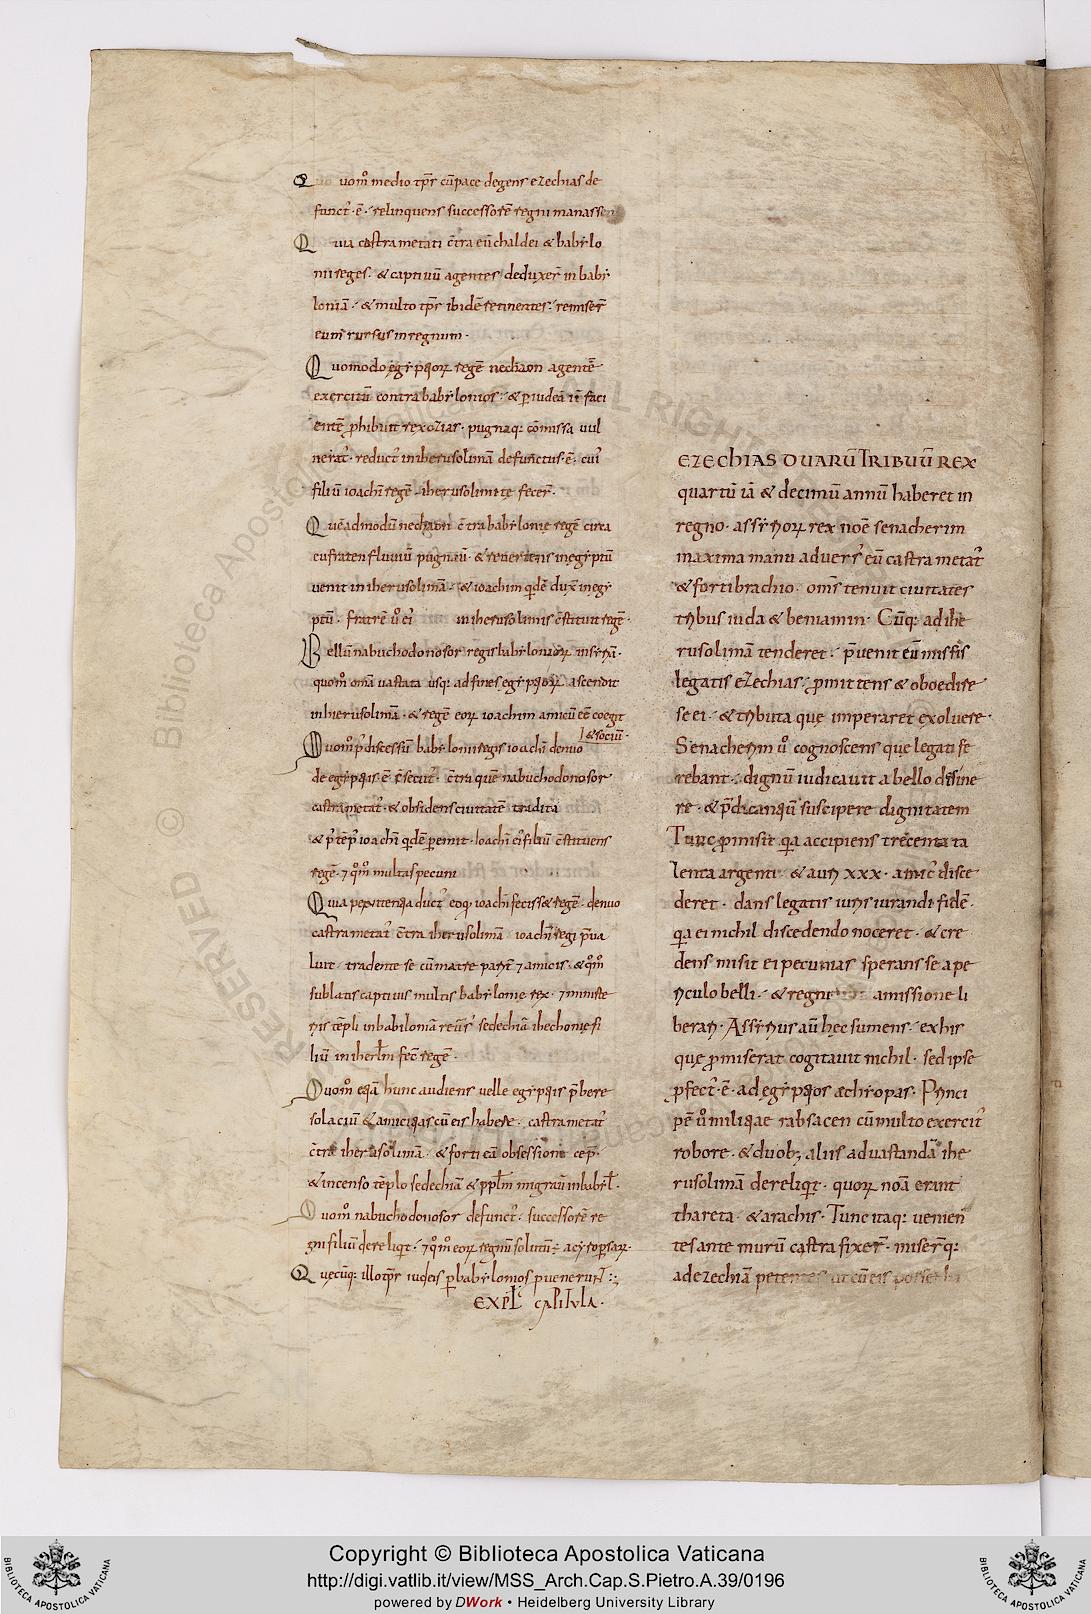 Quomo medio tprs cū pace degens ezechias de
funct᾽·ē· relinquens successorē regni manassen
Quia castra metati c̄tra eū chaldei & babylo
nii reges· & captiuū agentes deduxer̄ in baby
loniā· & multo tprs ibidē retinentes· remiser̄
eum rursus in regnum·
Quomodo ęgyptiorꝝ regē nechaon agentē
exercitū contra babylonios· & p iudeā it̄ faci
entē phibuit rex ozias· pugnaq: cōmissa uul
nerat᾽· reduct᾽ in iherusolimā defunctus·ē· cui᾽
filiū ioachī regē iherusolimitę fecer̄·
Quēadmodū nechaon c̄tra babylonię regē circa
eufraten fluuiū pugnauit· & reuertens in ęgyptū
uenit in iherusolimā· & ioachim qdē duxit in egy
ptū· fratrē u᾽o ei᾽ in iherusolimis c̄stituit regē·
Bellū nabuchodonosor regis babyloniorꝝ in syriā·
quom᾽o omā uastata usq: ad fines egyptiorꝝ ascendit
in hierusolimā· & regē eorꝝ ioachim amicū eē coegit
& sociū·
Quom᾽o p᾽ discessū babylonii regis ioachī denuo
de egyptiis ē c̄secut᾽· c̄tra quē nabuchodonosor
castra metat᾽· & obsidens ciuitatē tradita
& p᾽ tēp᾽ ioachī qdē pemit· ioachī ei᾽ filiū c̄stituens
regē· ⁊ qm᾽o multas pecuni
Quia penitentia duct᾽ eo q: ioachī fecisset regē· denuo
castra metat᾽ c̄tra iherusolimā ioachī regi p̄ua
luit· tradente se cū matre parit᾽ ⁊ amicis· & qm᾽o
sublatis captiuis multis babylonię rex· ⁊ ministe
riis tēpli in babiloniā reūs᾽ sedechiā iechonię fi
liū in iherl̄m fec̄ regē·
Quom᾽o eqā hunc audiens uelle egyptiis p̄bere
solaciū & amicitias cū eis habere· castra metat᾽
c̄tra iherusolimā· & forti eā obsessione cep̄·
& incenso tēplo sedechiā & pplm̄ migrauit in babyl̄·
Quom᾽o nabuchodonosor defunct᾽· successorē re
gni filiū dereliqit· ⁊ qm᾽o eorꝝ regnū solutū·ē· a cyro psarꝝ·
Quecūq: illo tpr iudeis p babylonios puenerunt:
EXPL̄ CAPITULA·
EZECHIAS DUARŪ TRIBUŪ REX
quartū iā & decimū annū haberet in
regno· assyriorꝝ rex noē senacherim
maxima manu aduers᾽ eū castra metat᾽
& forti brachio· om̄s tenuit ciuitates
tribus iuda & beniamin· Cūq: ad ihe
rusolimā tenderet· p̄uenit eū missis
legatis ezechias· pmittens & oboedire
se ei· & tributa quę imperaret exoluere·
Senacherim u᾽o cognoscens que legati fe
rebant· dignū iudicauit a bello desine
re· & p̄dicanqū suscipere dignitatem
Tunc pmisit qa accipiens trecenta ta
lenta argenti· & auri xxx· amic᾽ disce
deret· dans legatis iuris iurandi fidē·
qa ei nichil discedendo noceret· & cre
dens misit ei pecunias sperans se a pe
riculo belli· & regni amissione li
berari· Assyrius aū hęc sumens· ex his
quę pmiserat cogitauit nichil· sed ipse
pfect᾽·ē· ad ęgyptios & ethyopas· Princi
pē u᾽o militiae rabsacen cū multo exercit᾽
robore· & duobꝫ aliis ad uastandā ihe
rusolimā dereliqit· quorꝝ noā erant
thareta· & arachis· Tunc itaq: uenien
tes ante murū castra fixer̄· miser̄q:
ad ezechiā petentes ut cū eis posset